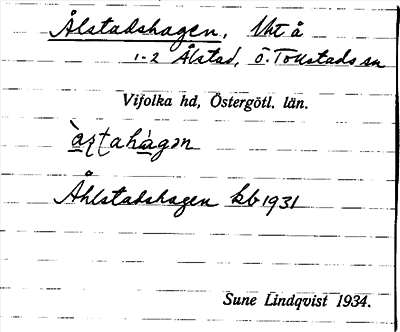 Ålstadshagen, Uht å
1-2 Ålstad, Ö. Tollstads sn
Vifolka hd, Östergötl. län.
Åhlstadshagen kb 1931
Sune Lindqvist 1934.